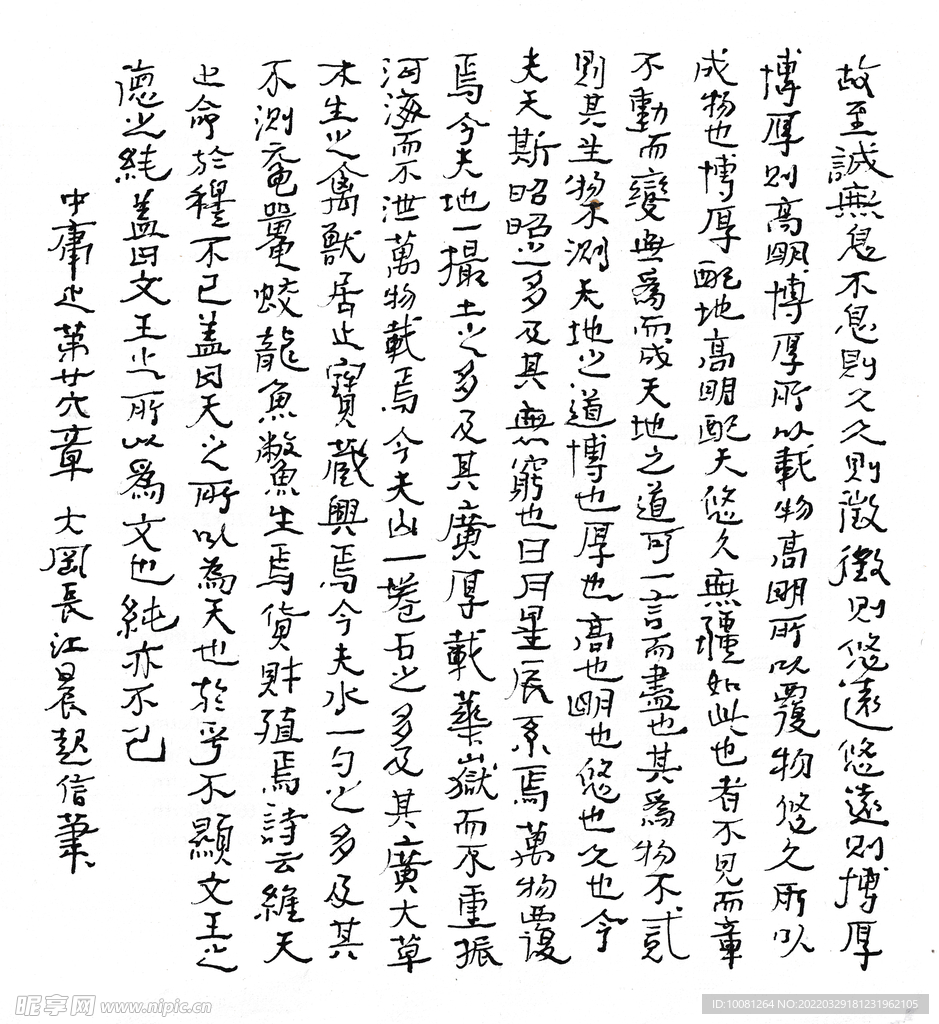 故至誠無息不息則久久則徵徵則悠遠悠遠則博厚
博厚則高明博厚所以載物高明所以覆物悠久所以
成物也博厚配地高明配天悠久無疆如此也者不見而章
不動而變無為而成天地之道可一言而盡也其為物不貳
則其生物不測天地之道博也厚也高也明也悠也久也今
夫天斯昭昭之多及其無窮也日月星辰系焉萬物覆
焉今夫地一撮土之多及其廣厚載華嶽而不重振
河海而不泄萬物載焉今夫山一卷石之多及其廣大草
木生之禽獸居之寶藏興焉今夫水一勺之多及其
不測黿鼉蛟龍魚鱉生焉貨財殖焉詩云維天
之命於穆不已蓋曰天之所以為天也於乎不顯文王之
德之純蓋曰文王之所以為文也純亦不已
中庸之第廿六章 大岡長江晨起信筆
昵享网 www.nipic.cn
ID:10081264 NO:20220329181231962105